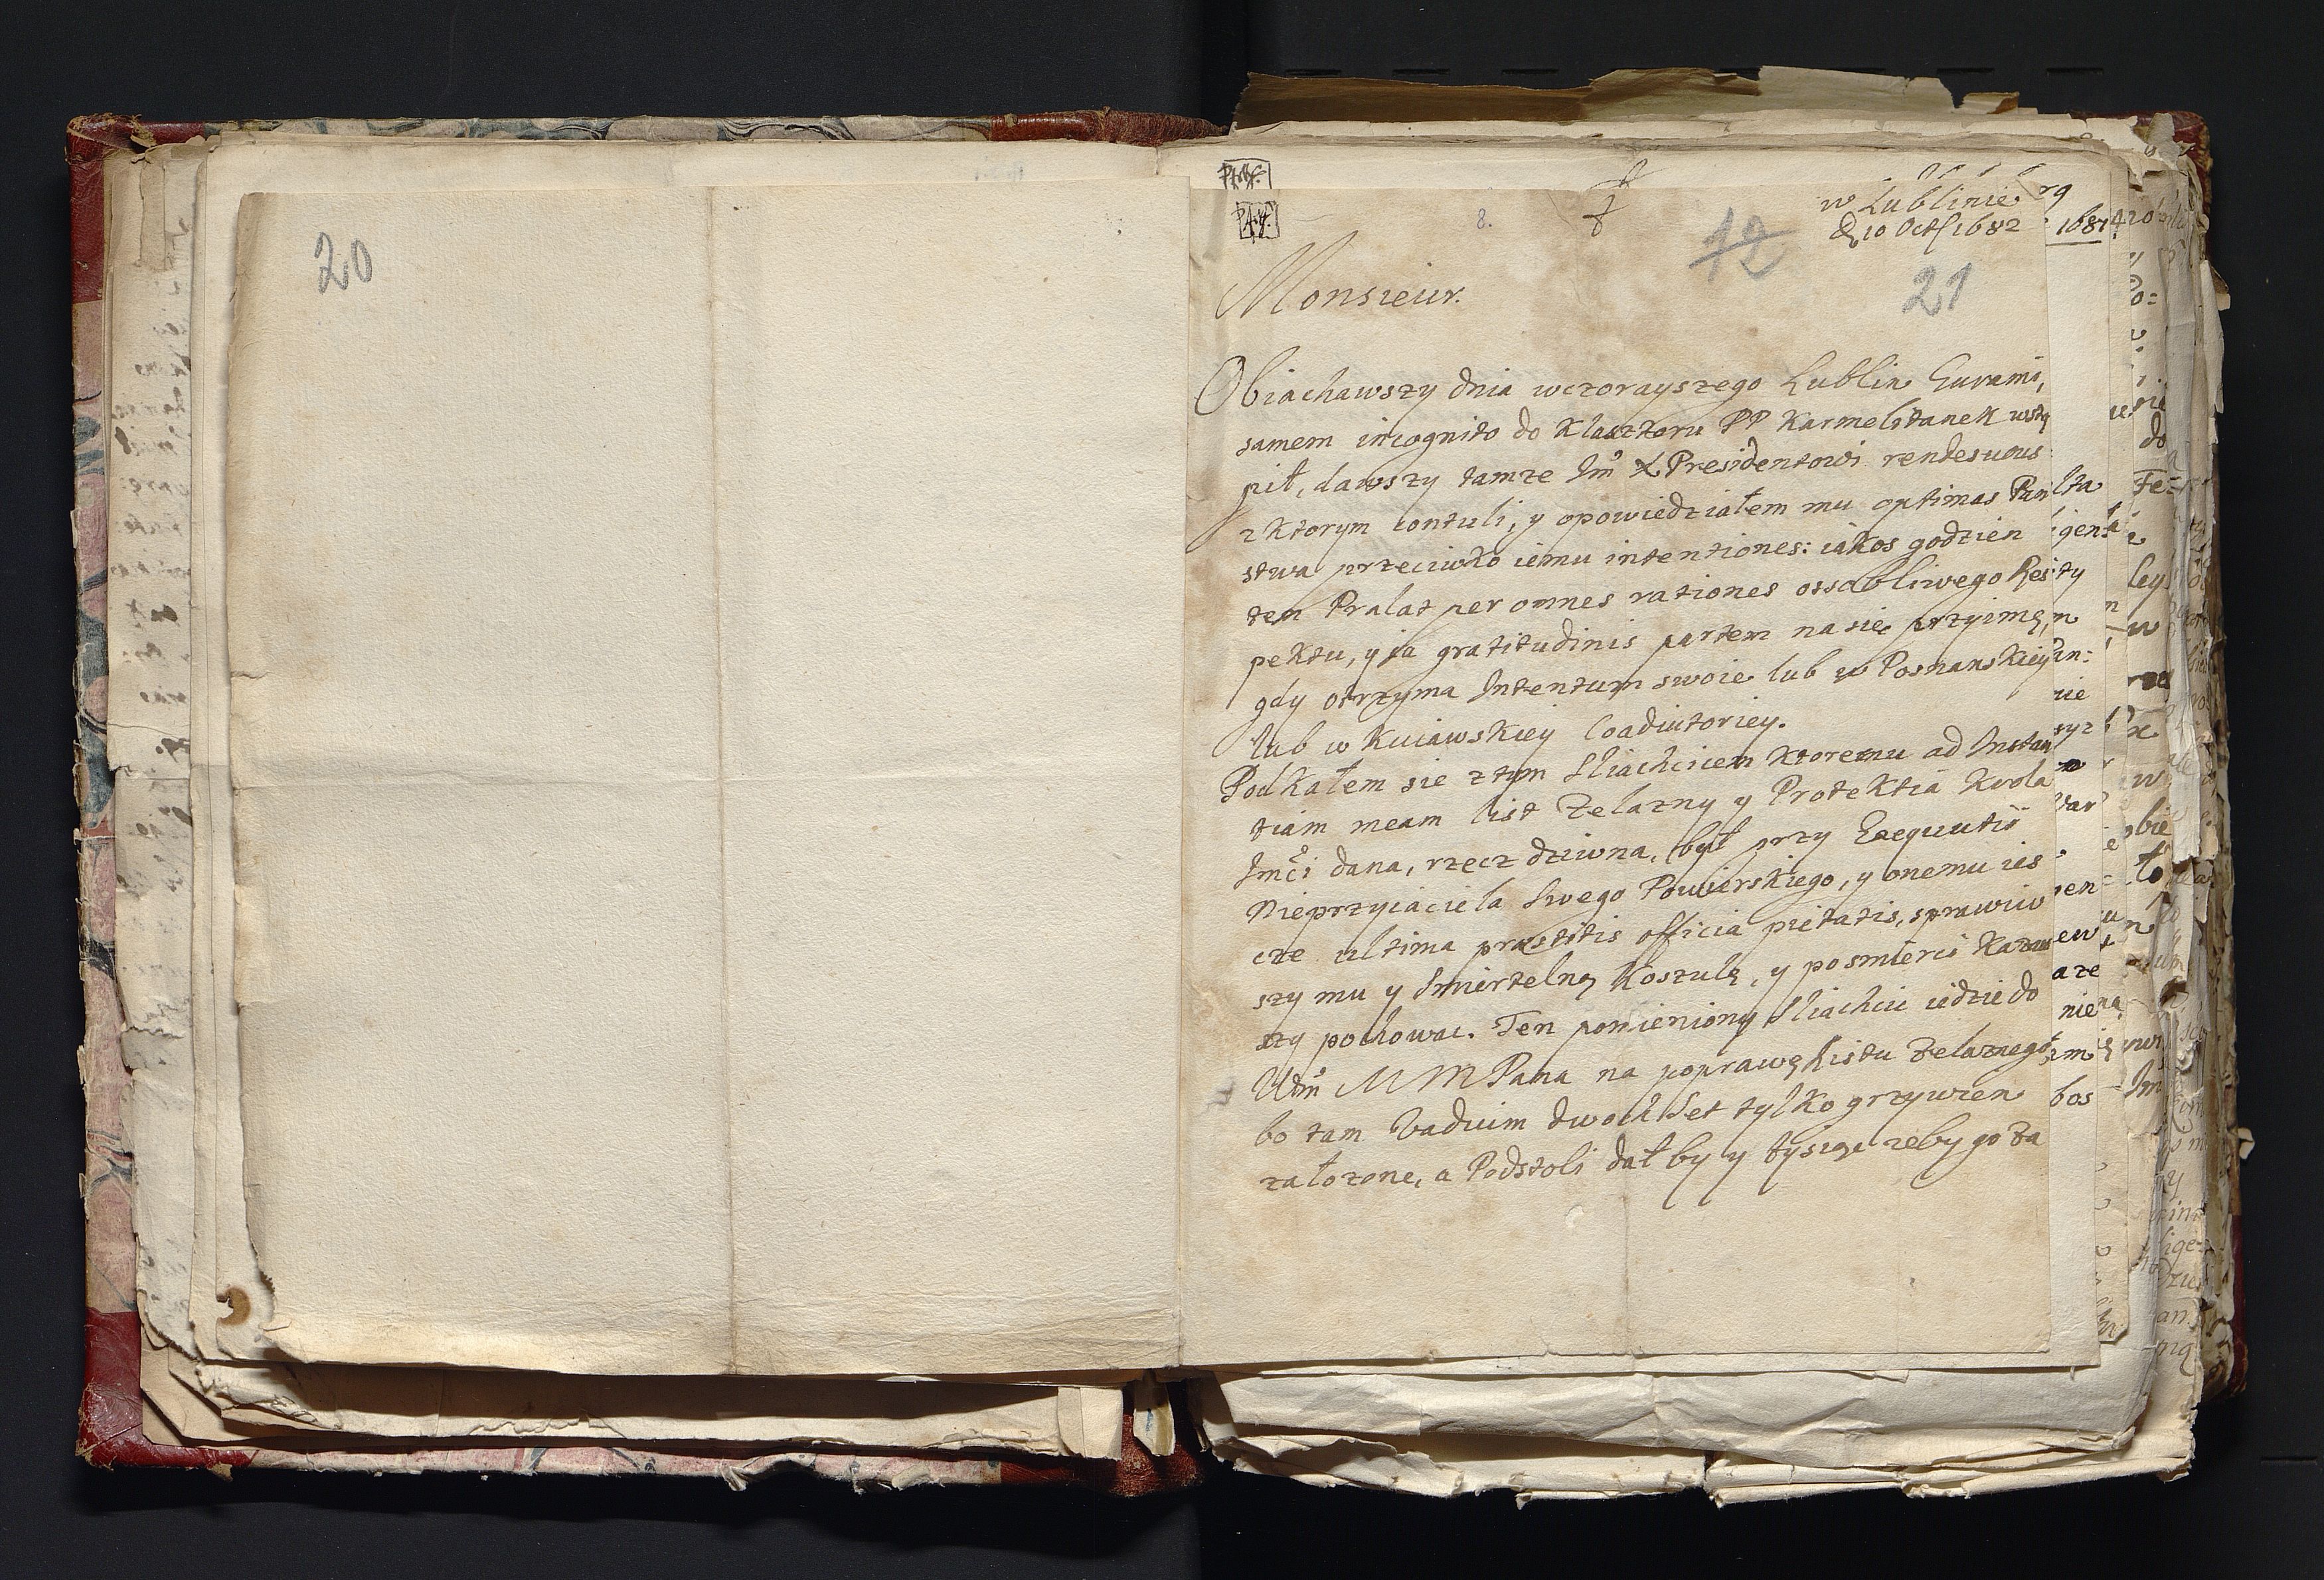 20
8.
w Lublinie
D. 10 Oct 1682
12
21
Monsieur.
Obiachawszy dnia wczorayszego Lublin Gurami,
samem incognito do Klasztoru PP Karmelitanek wstą
pił, dawszy tamze Im X Presidentowi rendesuous
z ktorym contuli, y opowiedziałem mu optimas Pan
stwa przeciwko iemu intentiones: iakos godzien
ten Pralat per omnes rationes ossobliwego Res
pektu, y ia gratitudinis partem na sie przyimę,
gdy otrzyma Intentum swoie lub w Posnanskiey
lub w Kuiawskiey Coadiutoriey.
Podkałem sie z tym Sliachcicem ktoremu ad Instan
tiam meam list Zelazny y Protektia Krola
Imci dana, rzecz dziwna, był przy Exequutii
Nieprzyiaciela swego Powierskiego, y onemu ies
cze ultima præstitis officia pietatis, sprawiw
szy mu y Smiertelną Koszulę, y posmierci Kazaw
szy pochowac. Ten pomieniony Sliachcic iedzie do
Wm M M Pana na poprawę Listu Zelaznego,
bo tam Vadium dwoch Set tylko grzywien
załozone, a Podstoli dał by y tysiąc zeby go za